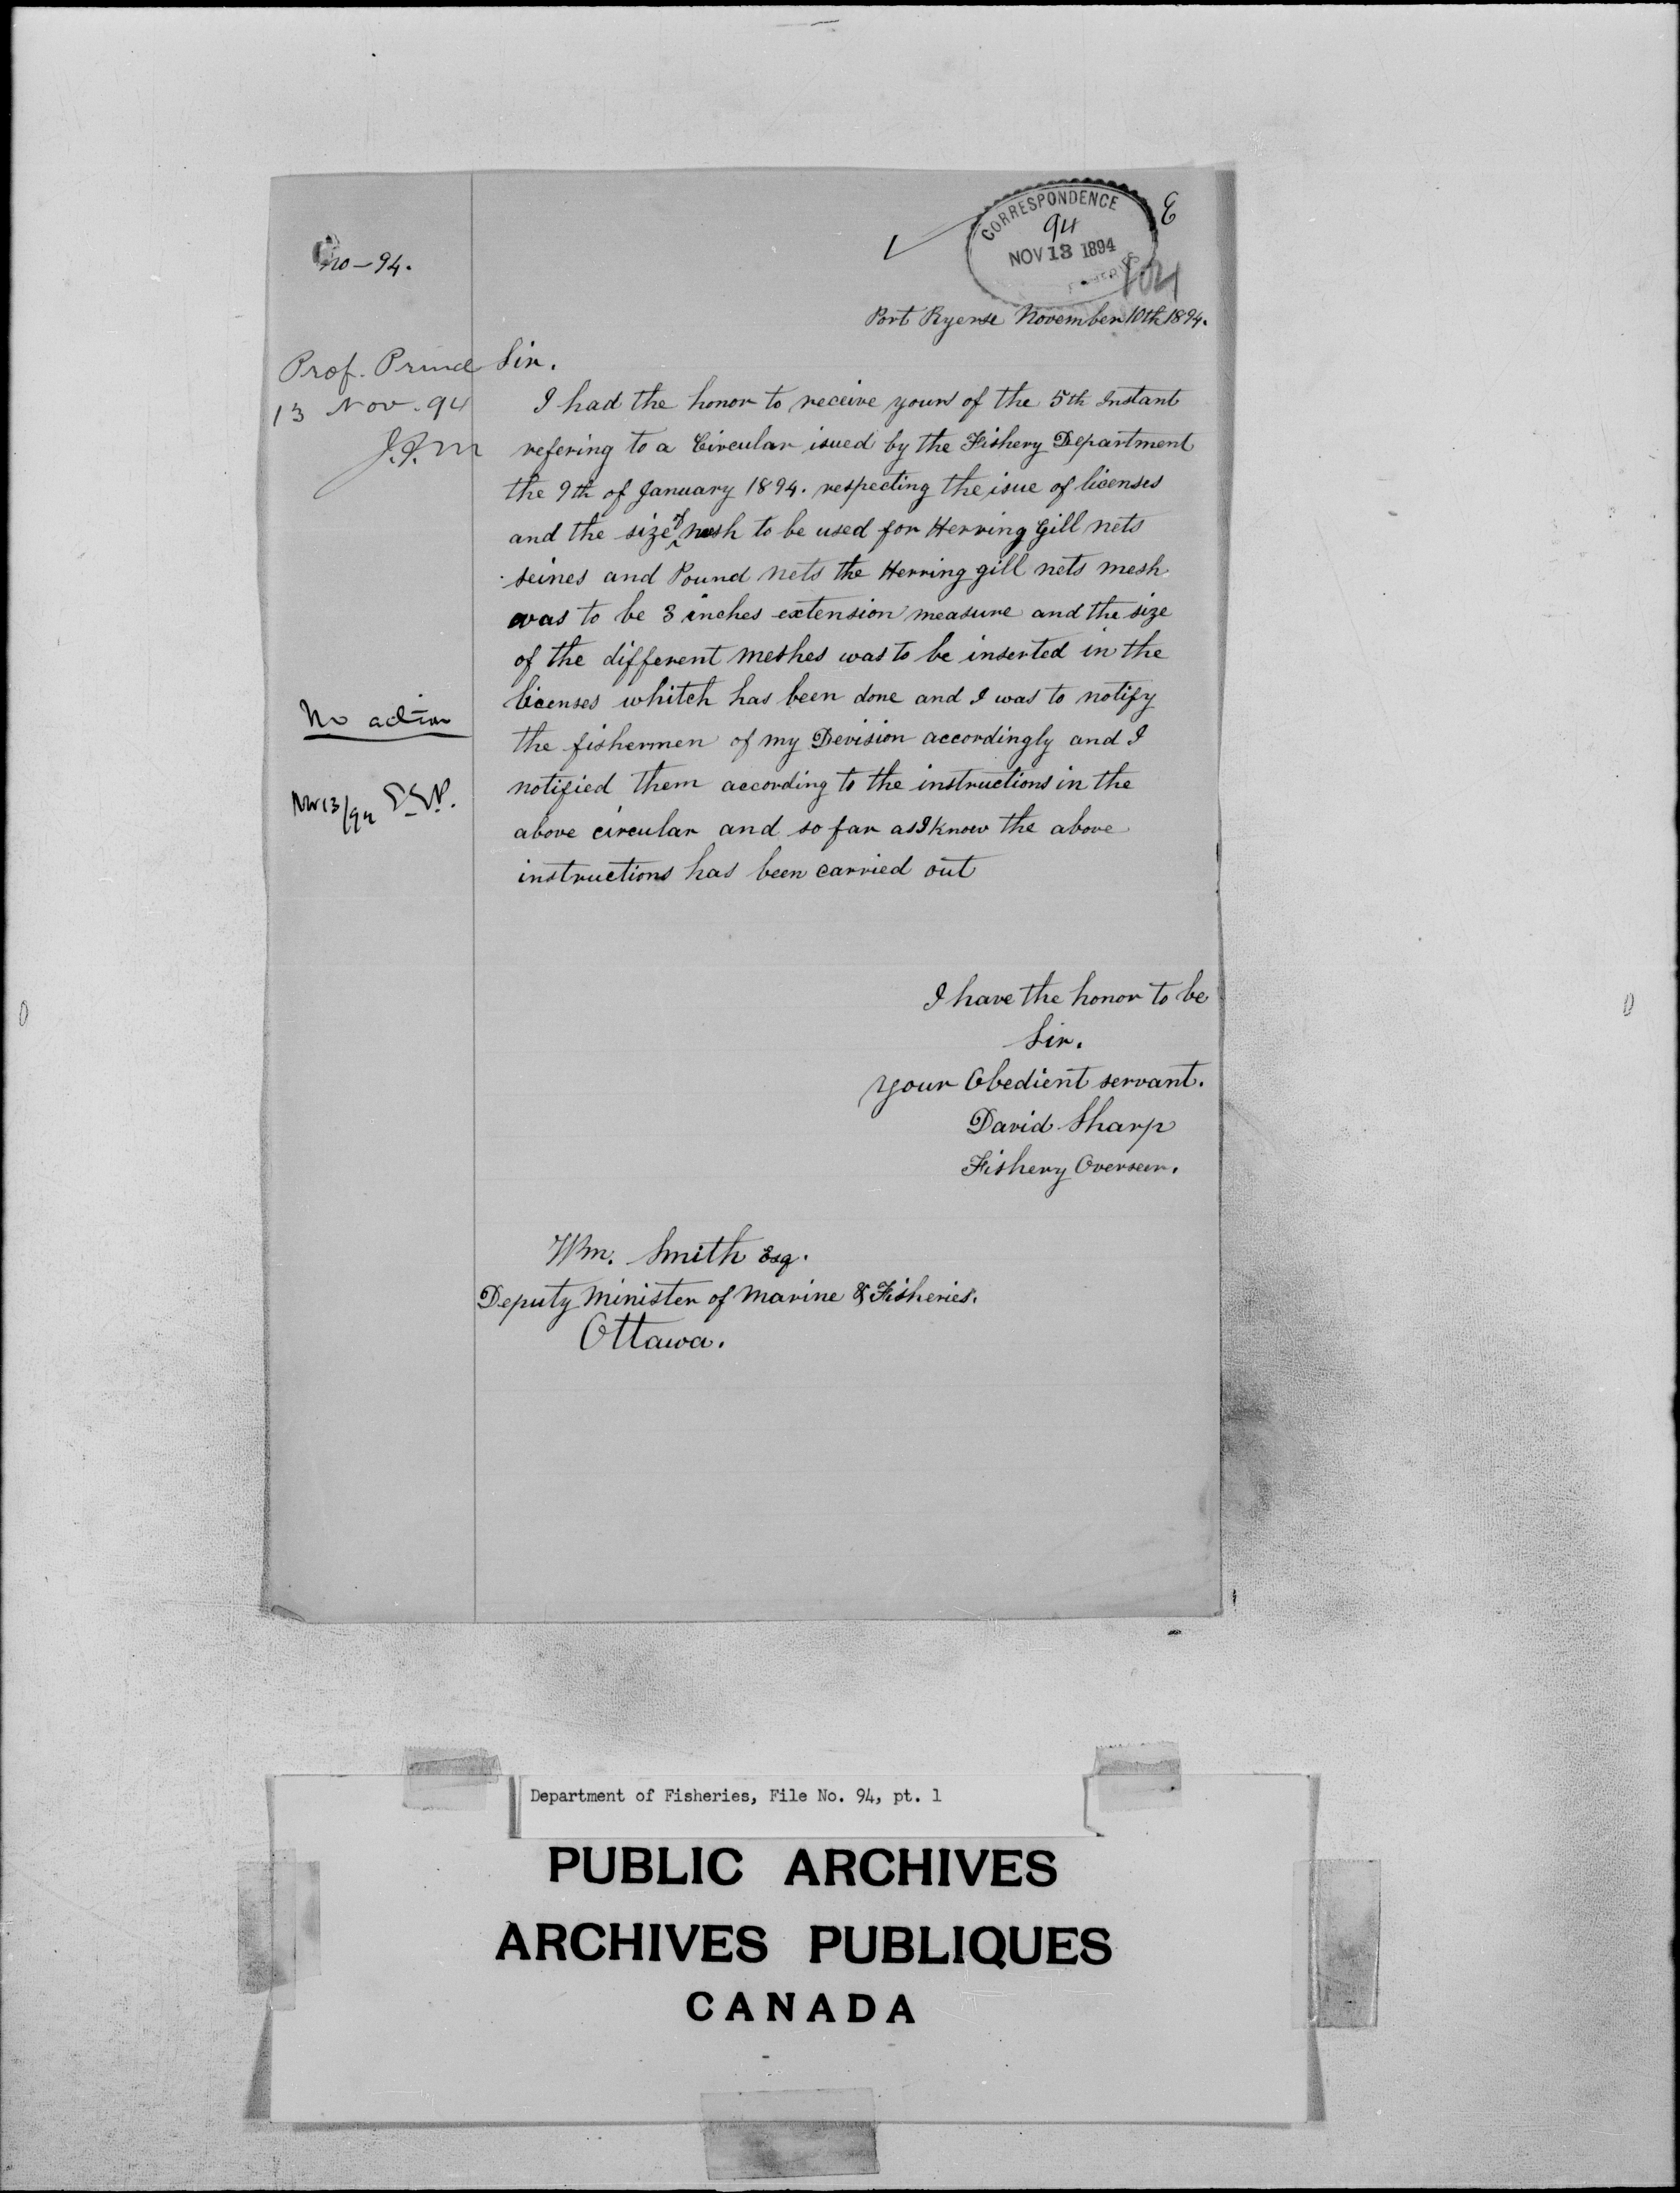 CORRESPONDENCE
94
NOV 13 1894
E
104
No-94.
Port Ryerse November 10th 1894.
Prof. Prince
13 Nov. 94
Sir.
I had the honor to receive yours of the 5th Instant
refering to a Circular isued by the Fishery Department
the 9th of January 1894. respecting the isue of licenses
and the size of mesh to be used for Herring Gill nets
seines and Pound nets the Herring gill nets mesh
was to be 3 inches extension measure and the size
of the different meshes was to be inserted in the
licenses whitch has been done and I was to notify
the fishermen of my Devision accordingly and I
notified them according to the instructions in the
above circular and so far as I know the above
instructions has been carried out
No action
Nov 13/94 E.E.P.
I have the honor to be
Sir.
your Obedient servant.
David Sharp
Fishery Overseer.
Wm. Smith Esq.
Deputy Minister of Marine & Fisheries.
Ottawa.
Department of Fisheries, File No. 94, pt. 1
PUBLIC ARCHIVES
ARCHIVES PUBLIQUES
CANADA